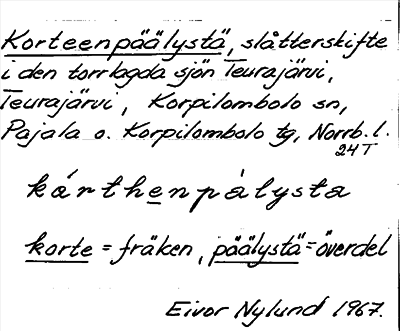 Korteenpäälystä, slåtterskifte
i den torrlagda sjön Teurajärvi,
Teurajärvi, Korpilombolo sn,
Pajala o. Korpilombolo tg, Norrb. l.
24 T
kárthenpàlysta
korte = fräken, päälystä = överdel
Eivor Nylund 1967.